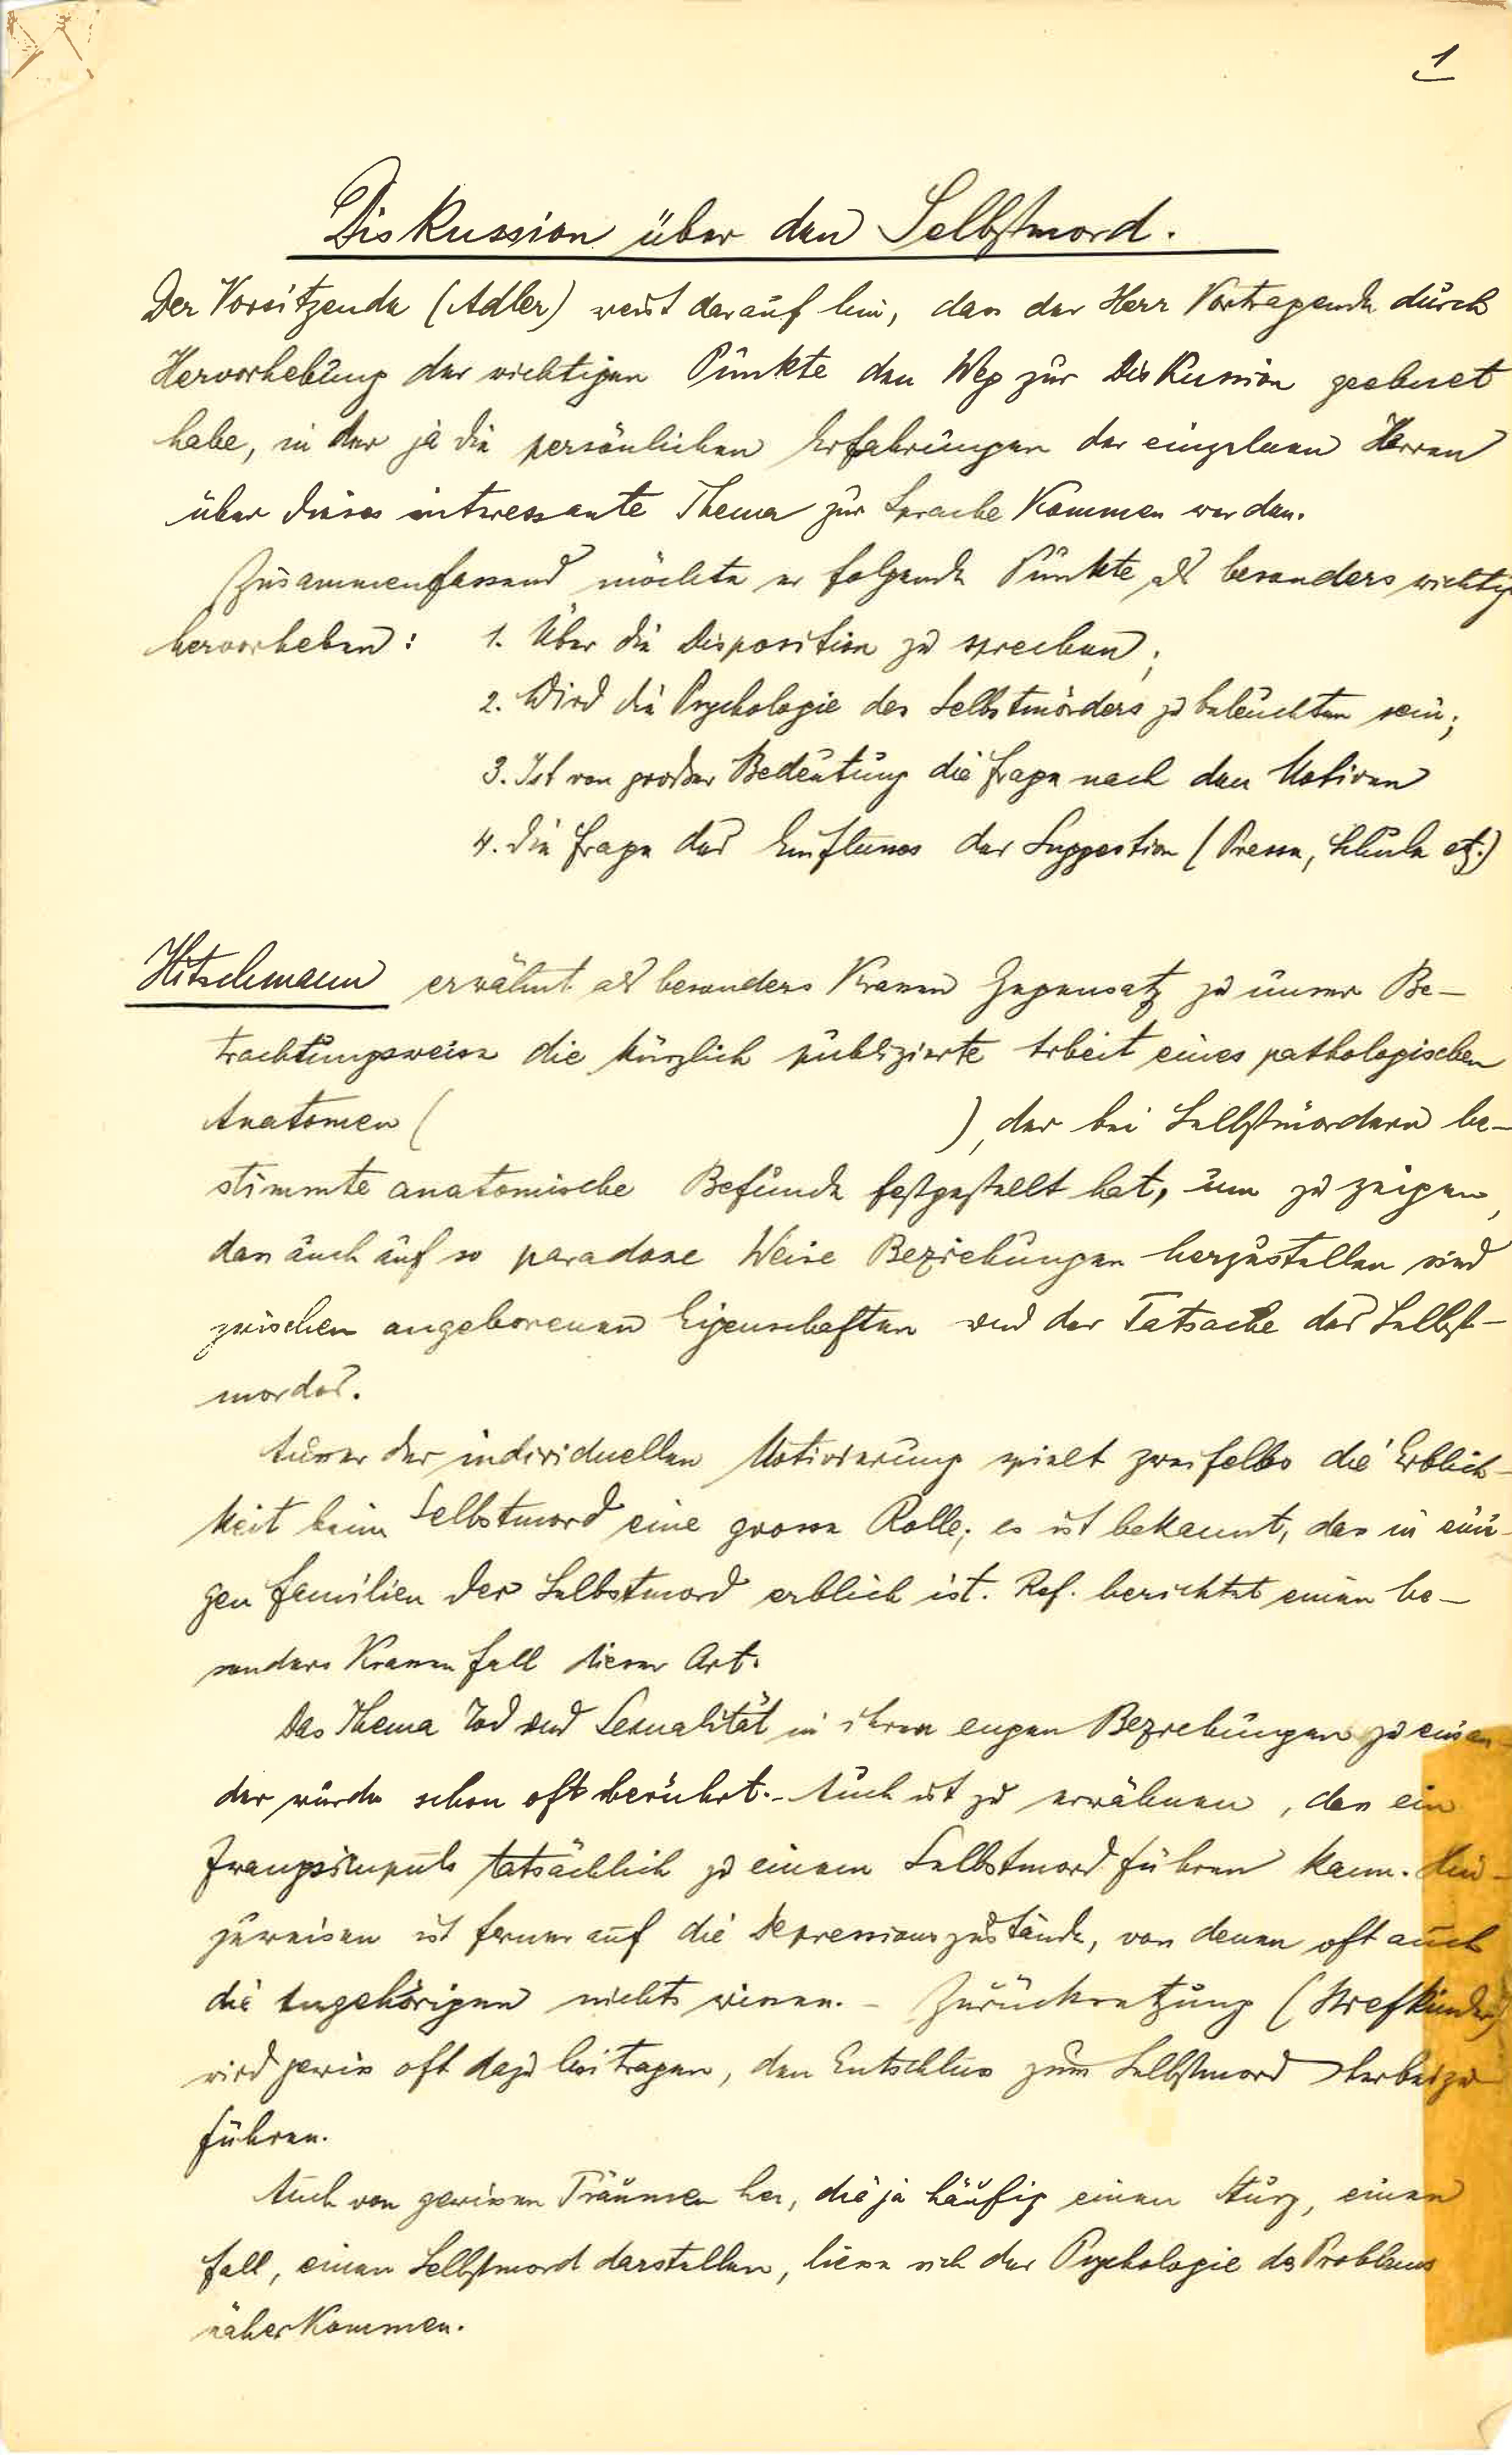 1
Diskussion über den Selbstmord.
Der Vorsitzende (Adler) weist darauf hin, dass der Herr Vortragende durch
Hervorhebung der wichtigen Punkte den Weg zur Diskussion geebnet
habe, in der ja die persönlichen Erfahrungen der einzelnen Herren
über dieses interessante Thema zur Sprache kommen werden.
Zusammenfassend möchte er folgende Punkte als besonders wichtig
hervorheben: 1. Über die Disposition zu sprechen;
2. Wird die Psychologie des Selbstmörders zu beleuchten sein;
3. Ist von großer Bedeutung die Frage nach den Motiven
4. Die Frage des Einflusses der Suggestion (Presse, Schule etz.)
Hitschmann erwähnt als besonders krassen Gegensatz zu unserer Be-
trachtungsweise die kürzlich publizierte Arbeit eines pathologischen
Anatomen ( ), der bei Selbstmördern be-
stimmte anatomische Befunde festgestellt hat, um zu zeigen,
dass auch auf so paradoxe Weise Beziehungen herzustellen sind
zwischen angeborenen Eigenschaften und der Tatsache des Selbst-
mordes.
Ausser der individuellen Motivierung spielt zweifellos die Erblich-
keit beim Selbstmord eine grosse Rolle; es ist bekannt, dass in eini-
gen Familien der Selbstmord erblich ist. Ref. berichtet einen be-
sonders krassen Fall dieser Art.
Das Thema Tod und Sexualität in ihren engen Beziehungen zu einan-
der wurde schon oft berührt. - Auch ist zu erwähnen, dass ein
Zwangsimpuls tatsächlich zu einem Selbstmord führen kann. Hin-
zuweisen ist ferner auf die Depressionszustände, von denen oft auch
die Angehörigen nichts wissen. - Zurücksetzung (Stiefkinder)
wird gewiss oft dazu beitragen, den Entschluss zum Selbstmord herbeizu
führen.
Auch von gewissen Träumen her, die ja häufig einen Sturz, einen
Fall, einen Selbstmord darstellen, liesse sich der Psychologie des Problems
näher kommen.